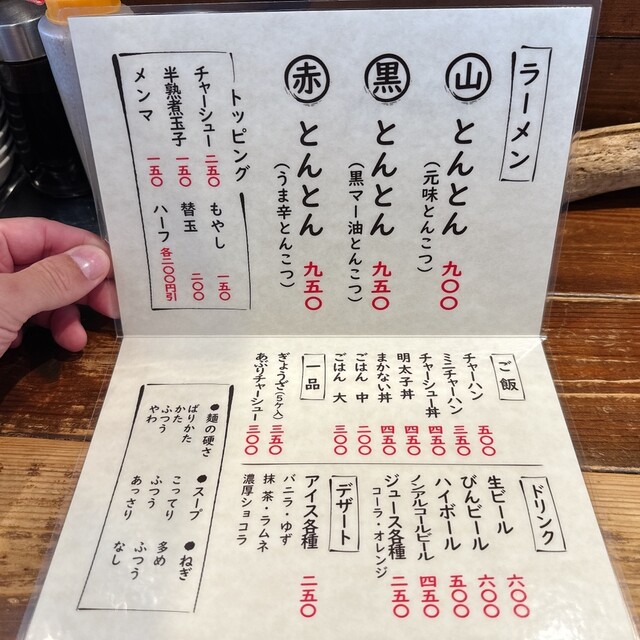 ラーメン
山 とんとん 九〇〇
(元味とんこつ)
黒 とんとん 九五〇
(黒マー油とんこつ)
赤 とんとん 九五〇
(うま辛とんこつ)
トッピング
チャーシュー 二五〇
半熟煮玉子 一五〇
メンマ 一五〇
もやし 一五〇
替玉 二〇〇
ハーフ 各二〇〇円引
ご飯
チャーハン 五〇〇
ミニチャーハン 三五〇
チャーシュー丼 四五〇
明太子丼 四五〇
まかない丼 四五〇
ごはん 中 二〇〇
ごはん 大 三〇〇
一品
ぎょうざ(5ケ入) 三五〇
あぶりチャーシュー 三〇〇
ドリンク
生ビール 六〇〇
びんビール 六〇〇
ハイボール 五〇〇
ノンアルコールビール 四五〇
ジュース各種 二五〇
コーラ・オレンジ
デザート
アイス各種 二五〇
バニラ・ゆず
抹茶・ラムネ
濃厚ショコラ
●麺の硬さ
ばりかた
かた
ふつう
やわ
●スープ
こってり
ふつう
あっさり
●ねぎ
多め
ふつう
なし